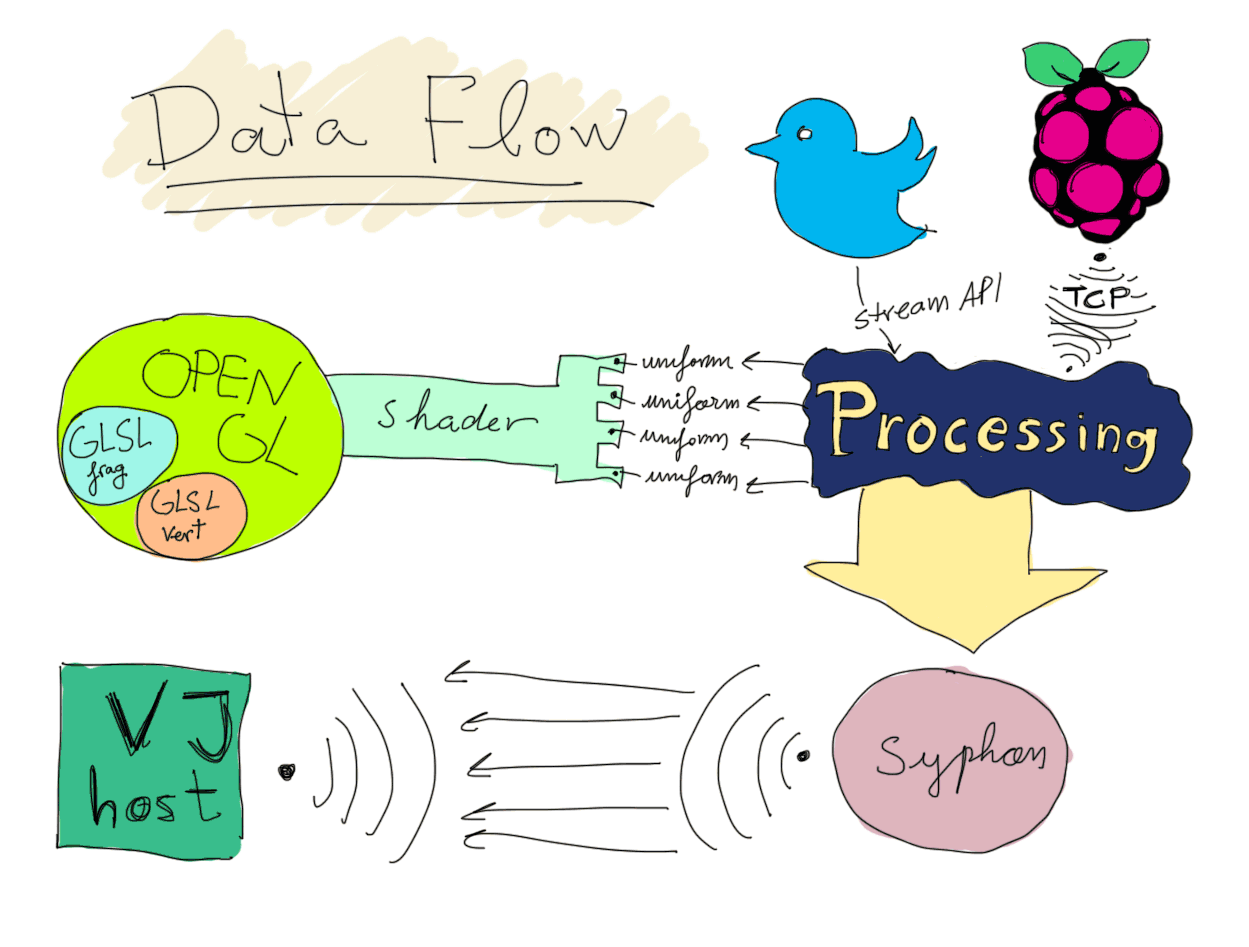 Data Flow
stream API
TCP
OPEN
GL
GLSL
frag
GLSL
vert
shader
uniform
uniform
uniform
uniform
Processing
VJ
host
Syphon